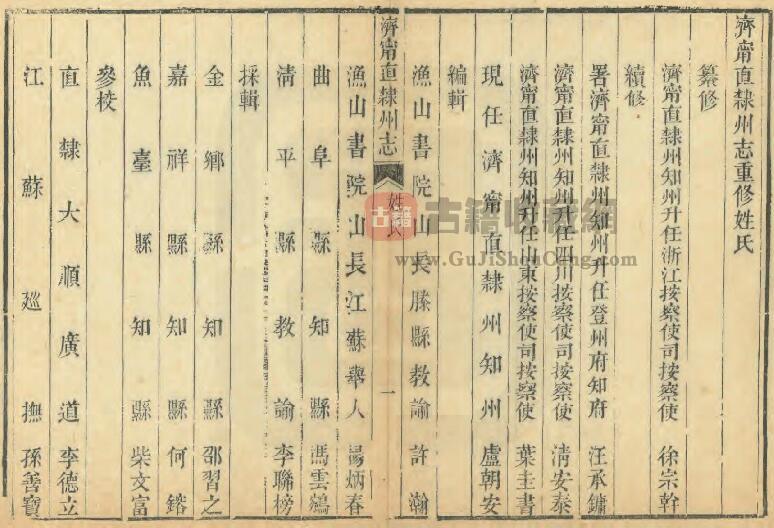 濟甯直隸州志重修姓氏
纂修
濟甯直隸州知州升任浙江按察使司按察使 徐宗幹
續修
署濟甯直隸州知州升任登州府知府 汪承鏞
濟甯直隸州知州升任四川按察使司按察使 清安泰
濟甯直隸州知州升任山東按察使司按察使 葉圭書
現任濟甯直隸州知州 盧朝安
編輯
漁山書院山長滕縣教諭 許瀚
濟甯直隸州志
姓氏
一
漁山書院山長江蘇舉人 楊炳春
曲阜縣知縣 馮雲鵷
清平縣教諭 李聯榜
採輯
金鄉縣知縣 邵習之
嘉祥縣知縣 何鎔
魚臺縣知縣 柴文富
參校
直隸大順廣道 李德立
江蘇巡撫 孫善寶
古籍
古籍收藏網
www.GuJiShouCang.com